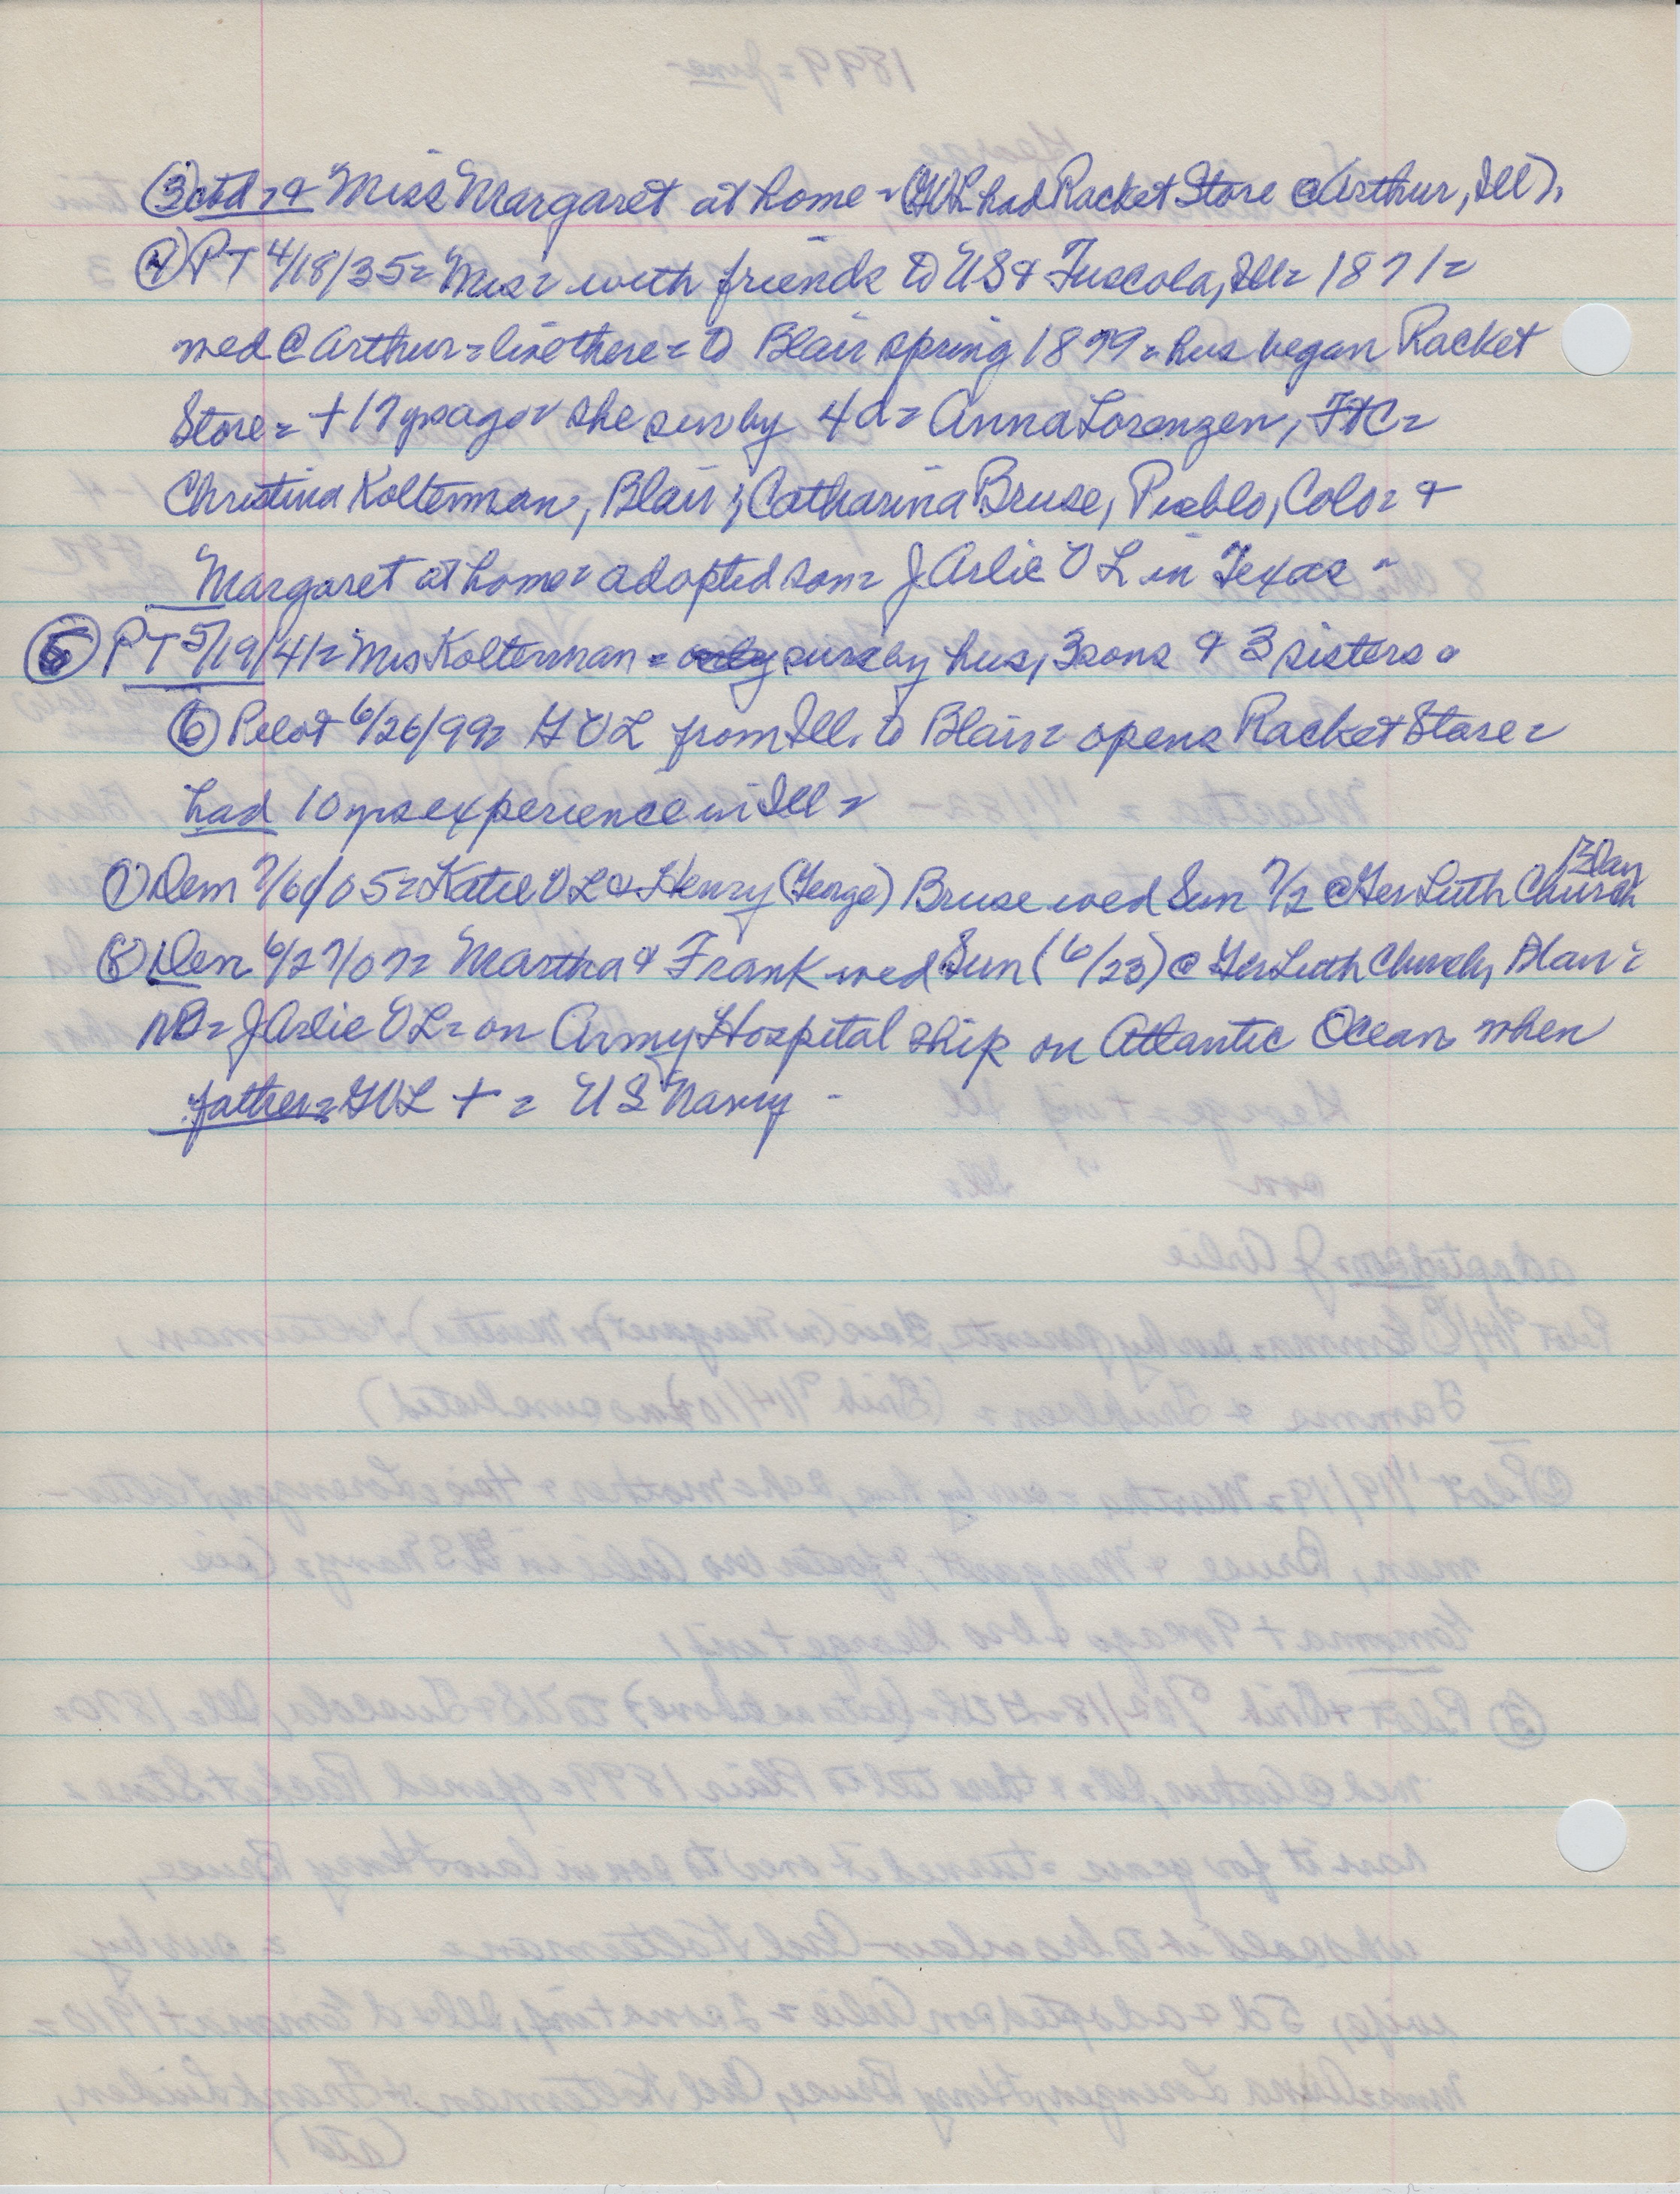 ③ctd = & Miss Margaret at home = (GVL had Racket Store @ Arthur, Ill).
④ PT 4/18/35 = Mrs = with friends to US & Tuscola, Ill = 1871 =
wed @ Arthur = live there = to Blair spring 1899 = hus began Racket
Store = + 17 yrs ago = she surv by 4 d = Anna Lorenzen, FtC =
Christina Kolterman, Blair; Catharina Bruse, Pueblo, Colo = &
Margaret at home = adopted son = J Arlie VL in Texas -
⑤ PT 5/19/41 = Mrs Kolterman = surv by hus, 3 sons & 3 sisters =
⑥ Pilot 6/26/99 = GVL from Ill. to Blair = opens Racket Store =
had 10 yrs experience in Ill =
⑦ Dem 7/6/05 = Katie VL & Henry (George) Bruse wed Sun 7/2 @ Ger Luth Church Blair
⑧ Dem 6/27/07 = Martha & Frank wed Sun (6/23) @ Ger Luth Church, Blair =
NB = J Arlie VL = on Army Hospital ship on Atlantic Ocean when
father = GVL + = US Navy -